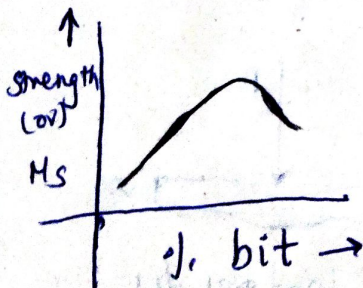 strength
(or)
MS
% bit